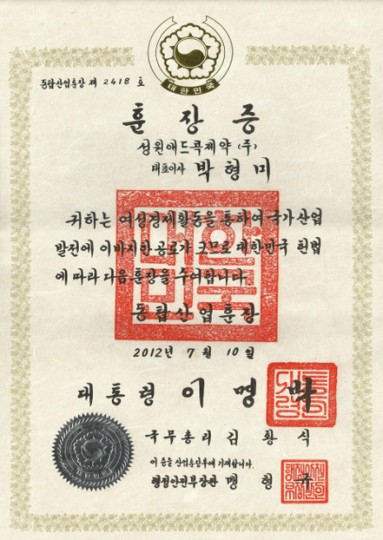 대한민국
동탑산업훈장 제 2418 호
훈장증
성원애드콕제약(주)
대표이사 박형미
귀하는 여성경제활동을 통하여 국가산업
발전에 이바지한 공로가 크므로 대한민국 헌법
에 따라 다음 훈장을 수여합니다.
동탑산업훈장
2012년 7월 10일
대통령 이명박
국무총리 김황식
이 증을 산업훈장부에 기재합니다.
행정안전부장관 맹형규